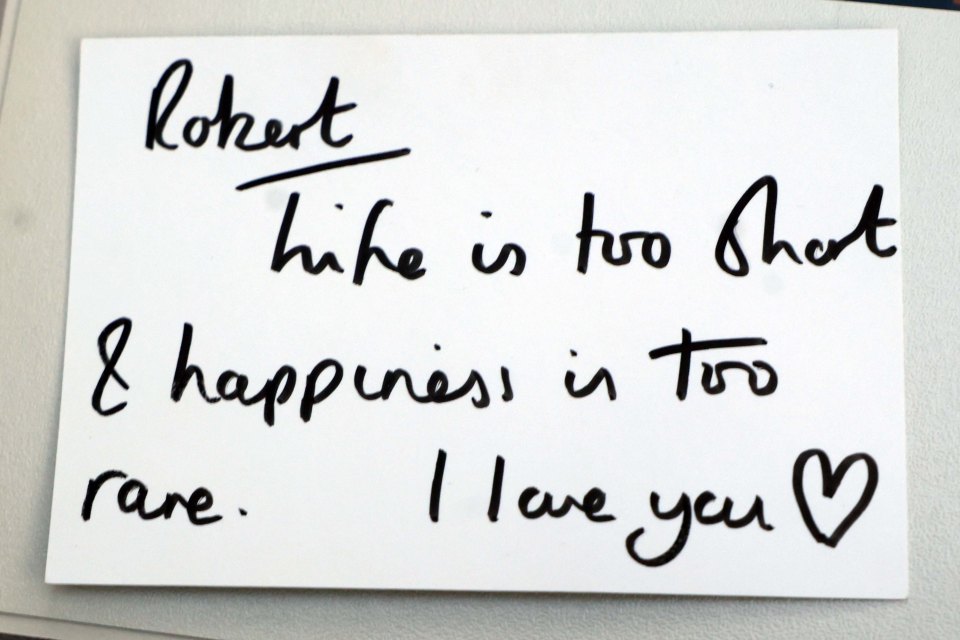 Robert
Life is too short
& happiness is too
rare. I love you ♡